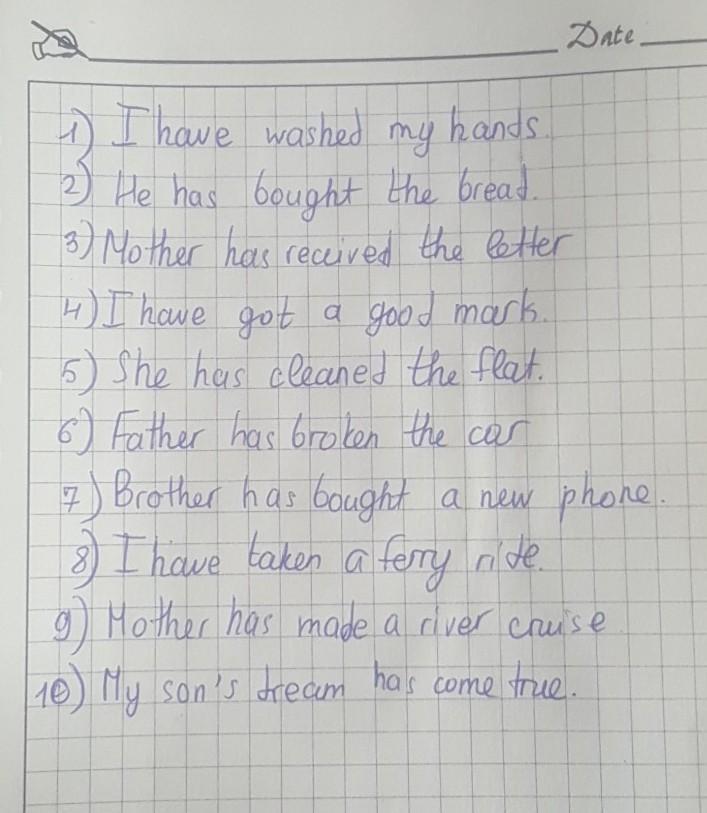 Date
1) I have washed my hands.
2) He has bought the bread.
3) Mother has received the letter
4) I have got a good mark.
5) She has cleaned the flat.
6) Father has broken the car
7) Brother has bought a new phone.
8) I have taken a ferry ride.
9) Mother has made a river cruise
10) My son's dream has come true.